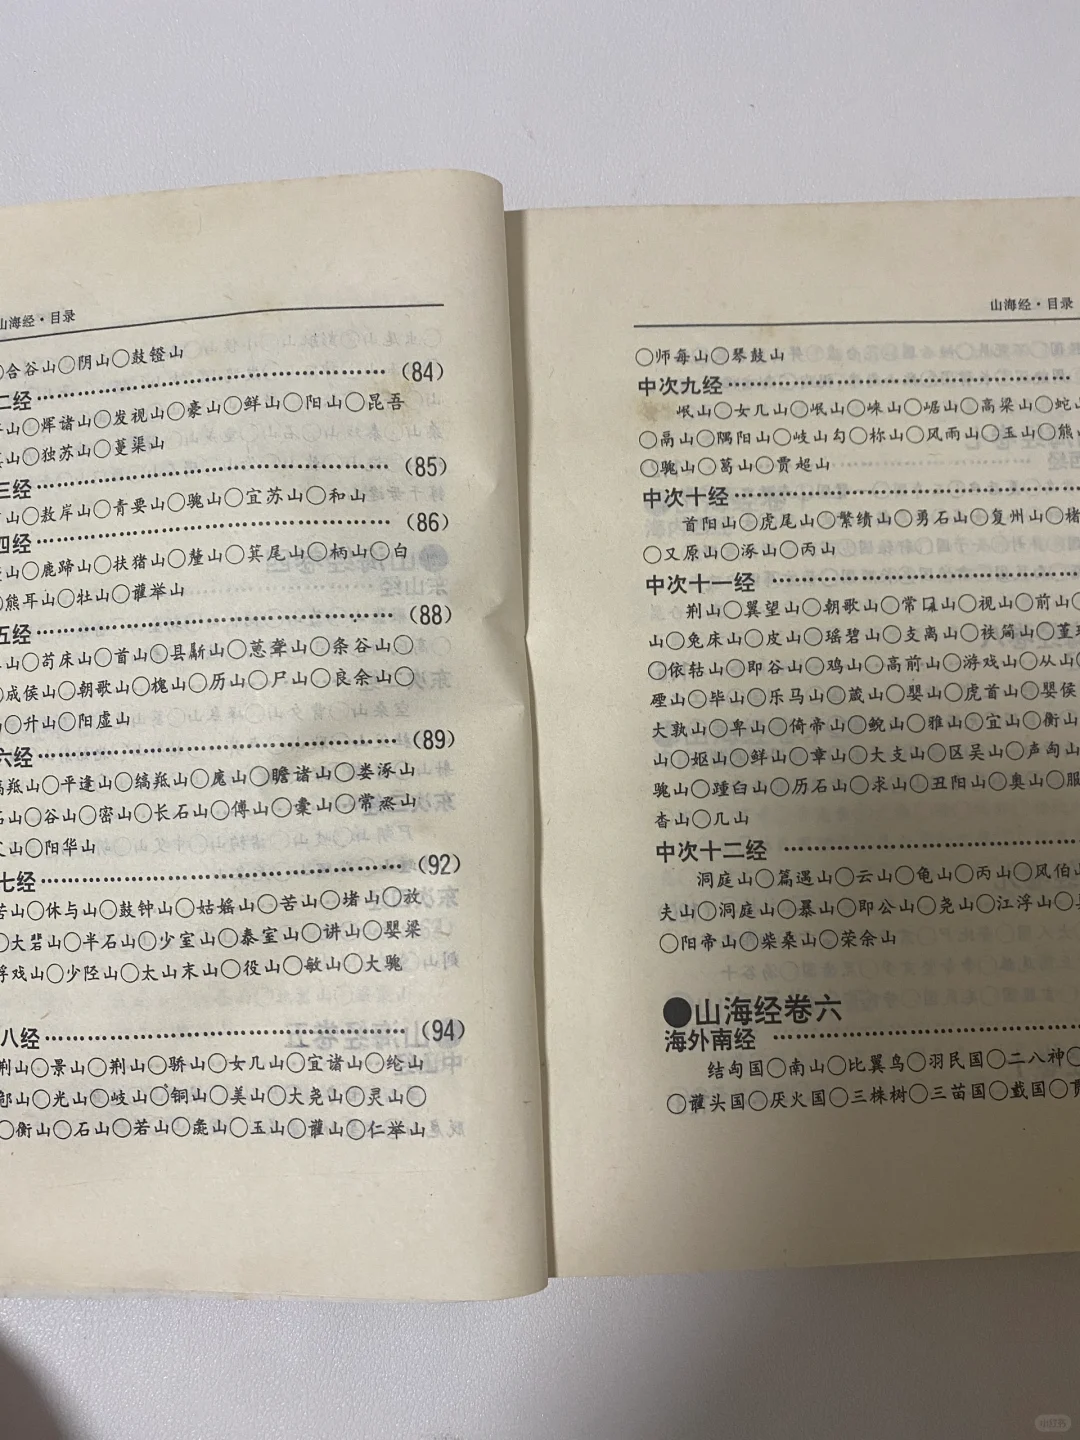 山海经·目录
合谷山○阴山○鼓镫山
二经……(84)
山○辉诸山○发视山○豪山○鲜山○阳山○昆吾
山○独苏山○蔓渠山
三经……(85)
山○敖岸山○青要山○騩山○宜苏山○和山
四经……(86)
山○鹿蹄山○扶猪山○釐山○箕尾山○柄山○白
○熊耳山○牡山○讙举山
五经……(88)
山○苟床山○首山○县斸山○葱聋山○条谷山○
○成侯山○朝歌山○槐山○历山○尸山○良余山○
○升山○阳虚山
六经……(89)
羝山○平逢山○缟羝山○廆山○瞻诸山○娄涿山
山○谷山○密山○长石山○傅山○橐山○常烝山
山○阳华山
七经……(92)
苦山○休与山○鼓钟山○姑媱山○苦山○堵山○放
○大𩇯山○半石山○少室山○泰室山○讲山○婴梁
浮戏山○少陉山○太山末山○役山○敏山○大騩
八经……(94)
荆山○景山○荆山○骄山○女几山○宜诸山○纶山
山○光山○岐山○铜山○美山○大尧山○灵山○
○衡山○石山○若山○彘山○玉山○讙山○仁举山
山海经·目录
○师每山○琴鼓山
中次九经……
岷山○女几山○岷山○崃山○崌山○高梁山○蛇山
○鬲山○隅阳山○岐山勾○㭈山○风雨山○玉山○熊山
○騩山○葛山○贾超山
中次十经……
首阳山○虎尾山○繁缋山○勇石山○复州山○楮
○又原山○涿山○丙山
中次十一经……
荆山○翼望山○朝歌山○常山○视山○前山○
山○兔床山○皮山○瑶碧山○支离山○袟简山○堇
○依轱山○即谷山○鸡山○高前山○游戏山○从山○
堙山○毕山○乐马山○葴山○婴山○虎首山○婴侯
大孰山○卑山○倚帝山○鲵山○雅山○宜山○衡山
山○妪山○鲜山○章山○大支山○区吴山○声匈山
騩山○踵臼山○历石山○求山○丑阳山○奥山○服
杳山○几山
中次十二经……
洞庭山○篇遇山○云山○龟山○丙山○风伯山
夫山○洞庭山○暴山○即公山○尧山○江浮山○
○阳帝山○柴桑山○荣余山
●山海经卷六
海外南经……
结匈国○南山○比翼鸟○羽民国○二八神○
○讙头国○厌火国○三株树○三苗国○臷国○贯